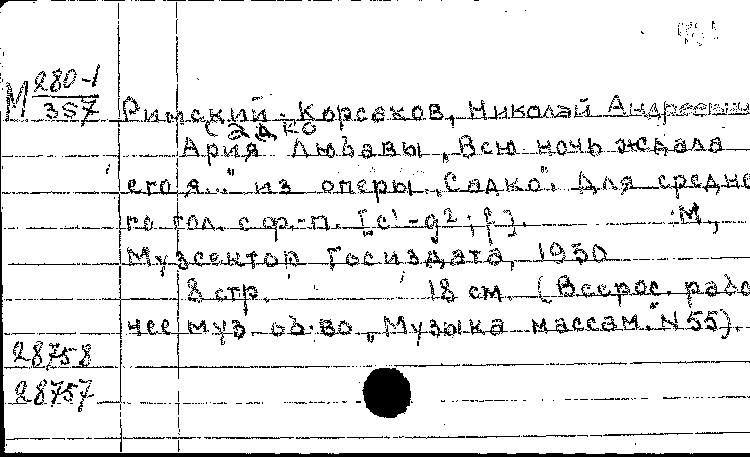 М 280-1
357
Римский-Корсаков, Николай Андреевич
(Садко)
Ария Любавы „Всю ночь ждала
его я..." из оперы „Садко". Для средне-
го гол. с ф.-п. [c¹-g²; f]. М.,
Музсектор Госиздата, 1930
8 стр. 18 см. (Всерос. рабо-
чее муз. об-во „Музыка массам." N 55).
28758
28757